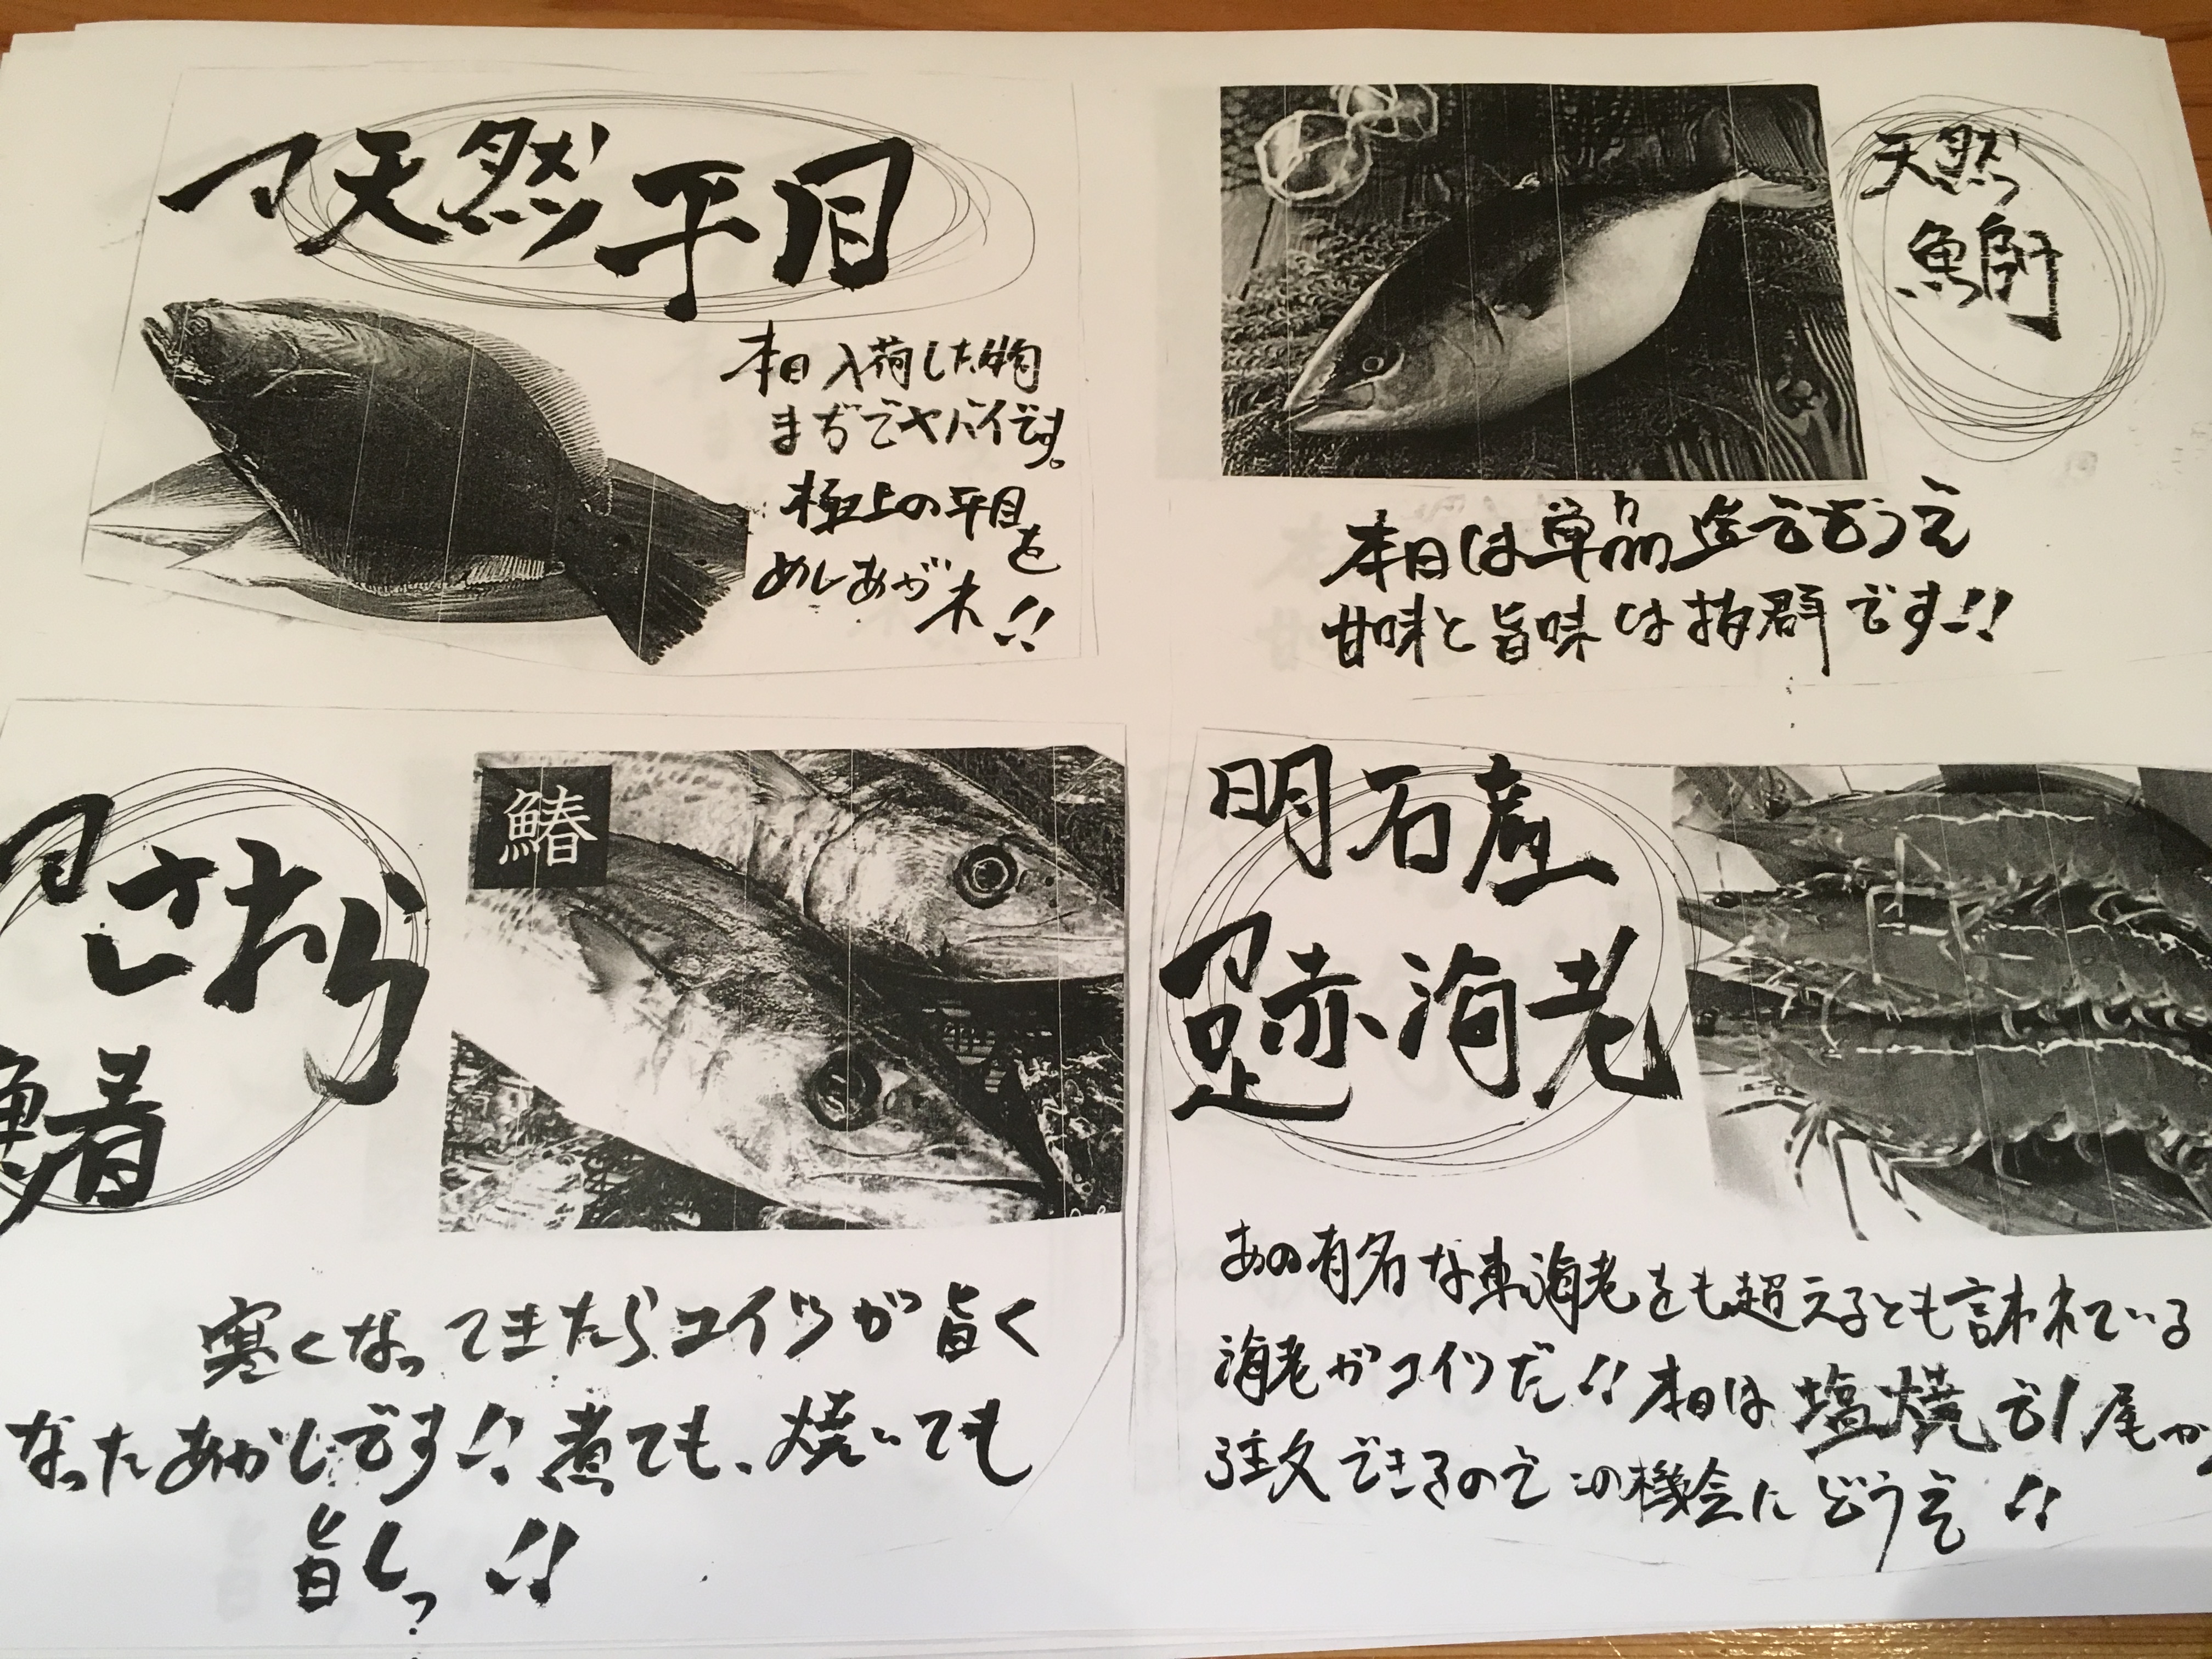 天然平目
本日入荷した物
まぢでヤバイです。
極上の平目を
めしあがれ!!
天然
鰤
本日は単品造でどうぞ
甘味と旨味は抜群です!!
さわら
鰆
鰆
寒くなってきたらコイツが旨く
なったあかしです!! 煮ても、焼いても
旨しっ!!
明石産
足赤海老
あの有名な車海老をも超えるとも言われている
海老がコイツだ!! 本日は塩焼で1尾か
注文できるのでこの機会にどうぞ!!